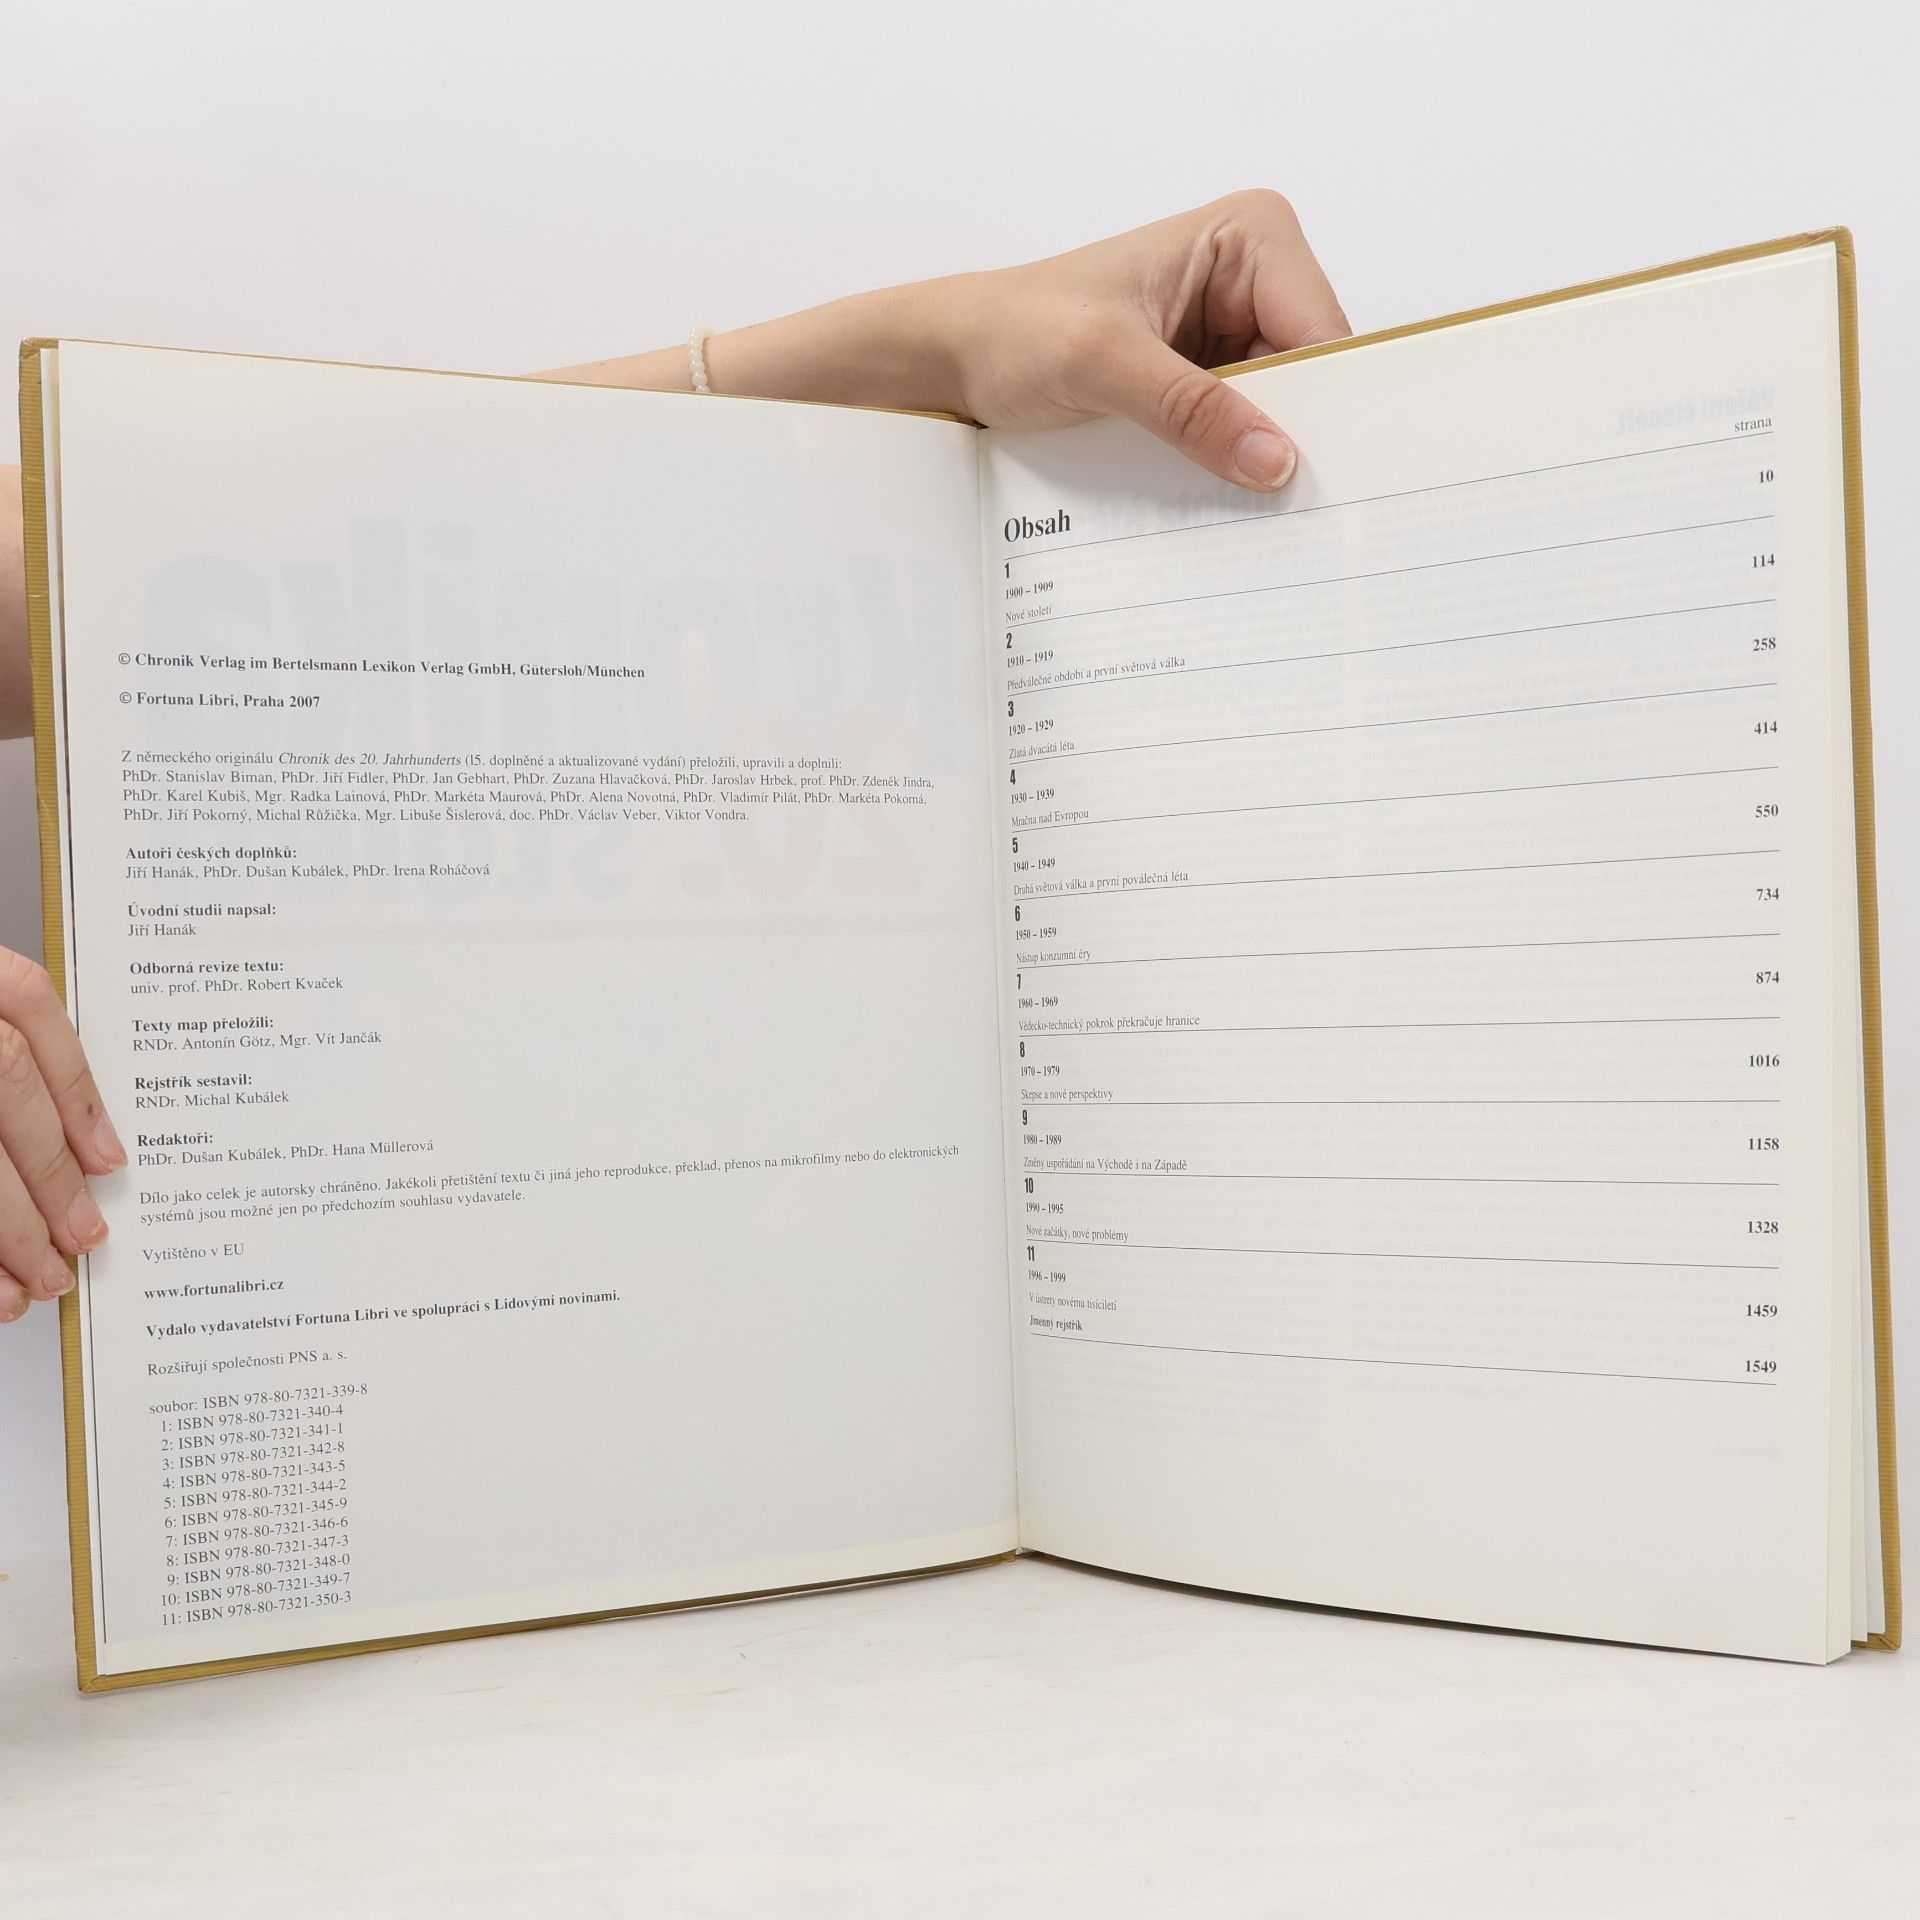 © Chronik Verlag im Bertelsmann Lexikon Verlag GmbH, Gütersloh/München
© Fortuna Libri, Praha 2007
Z německého originálu Chronik des 20. Jahrhunderts (15. doplněné a aktualizované vydání) přeložili, upravili a doplnili:
PhDr. Stanislav Biman, PhDr. Jiří Fidler, PhDr. Jan Gebhart, PhDr. Zuzana Hlavačková, PhDr. Jaroslav Hrbek, prof. PhDr. Zdeněk Jindra,
PhDr. Karel Kubiš, Mgr. Radka Lainová, PhDr. Markéta Maurová, PhDr. Alena Novotná, PhDr. Vladimír Pilát, PhDr. Markéta Pokorná,
PhDr. Jiří Pokorný, Michal Růžička, Mgr. Libuše Šislerová, doc. PhDr. Václav Veber, Viktor Vondra.
Autoři českých doplňků:
Jiří Hanák, PhDr. Dušan Kubálek, PhDr. Irena Roháčová
Úvodní studii napsal:
Jiří Hanák
Odborná revize textu:
univ. prof. PhDr. Robert Kvaček
Texty map přeložili:
RNDr. Antonín Götz, Mgr. Vít Jančák
Rejstřík sestavil:
RNDr. Michal Kubálek
Redaktoři:
PhDr. Dušan Kubálek, PhDr. Hana Müllerová
Dílo jako celek je autorsky chráněno. Jakékoli přetištění textu či jiná jeho reprodukce, překlad, přenos na mikrofilmy nebo do elektronických
systémů jsou možné jen po předchozím souhlasu vydavatele.
Vytištěno v EU
www.fortunalibri.cz
Vydalo vydavatelství Fortuna Libri ve spolupráci s Lidovými novinami.
Rozšiřují společnosti PNS a. s.
soubor: ISBN 978-80-7321-339-8
1: ISBN 978-80-7321-340-4
2: ISBN 978-80-7321-341-1
3: ISBN 978-80-7321-342-8
4: ISBN 978-80-7321-343-5
5: ISBN 978-80-7321-344-2
6: ISBN 978-80-7321-345-9
7: ISBN 978-80-7321-346-6
8: ISBN 978-80-7321-347-3
9: ISBN 978-80-7321-348-0
10: ISBN 978-80-7321-349-7
11: ISBN 978-80-7321-350-3
strana
Obsah
1
1900 – 1909
Nové století 10
2
1910 – 1919
Předválečné období a první světová válka 114
3
1920 – 1929
Zlatá dvacátá léta 258
4
1930 – 1939
Mračna nad Evropou 414
5
1940 – 1949
Druhá světová válka a první poválečná léta 550
6
1950 – 1959
Nástup konzumní éry 734
7
1960 – 1969
Vědecko-technický pokrok překračuje hranice 874
8
1970 – 1979
Skepse a nové perspektivy 1016
9
1980 – 1989
Změny uspořádání na Východě i na Západě 1158
10
1990 – 1995
Nové začátky, nové problémy 1328
11
1996 – 1999
V ústrety novému tisíciletí 1459
Jmenný rejstřík 1549